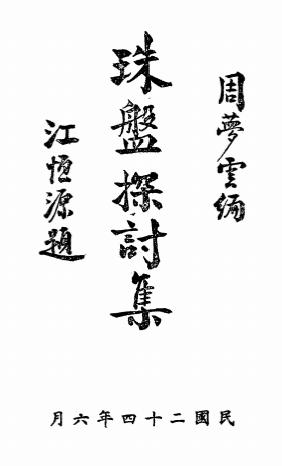 周夢雲編
珠盤探討集
江恒源題
民國二十四年六月